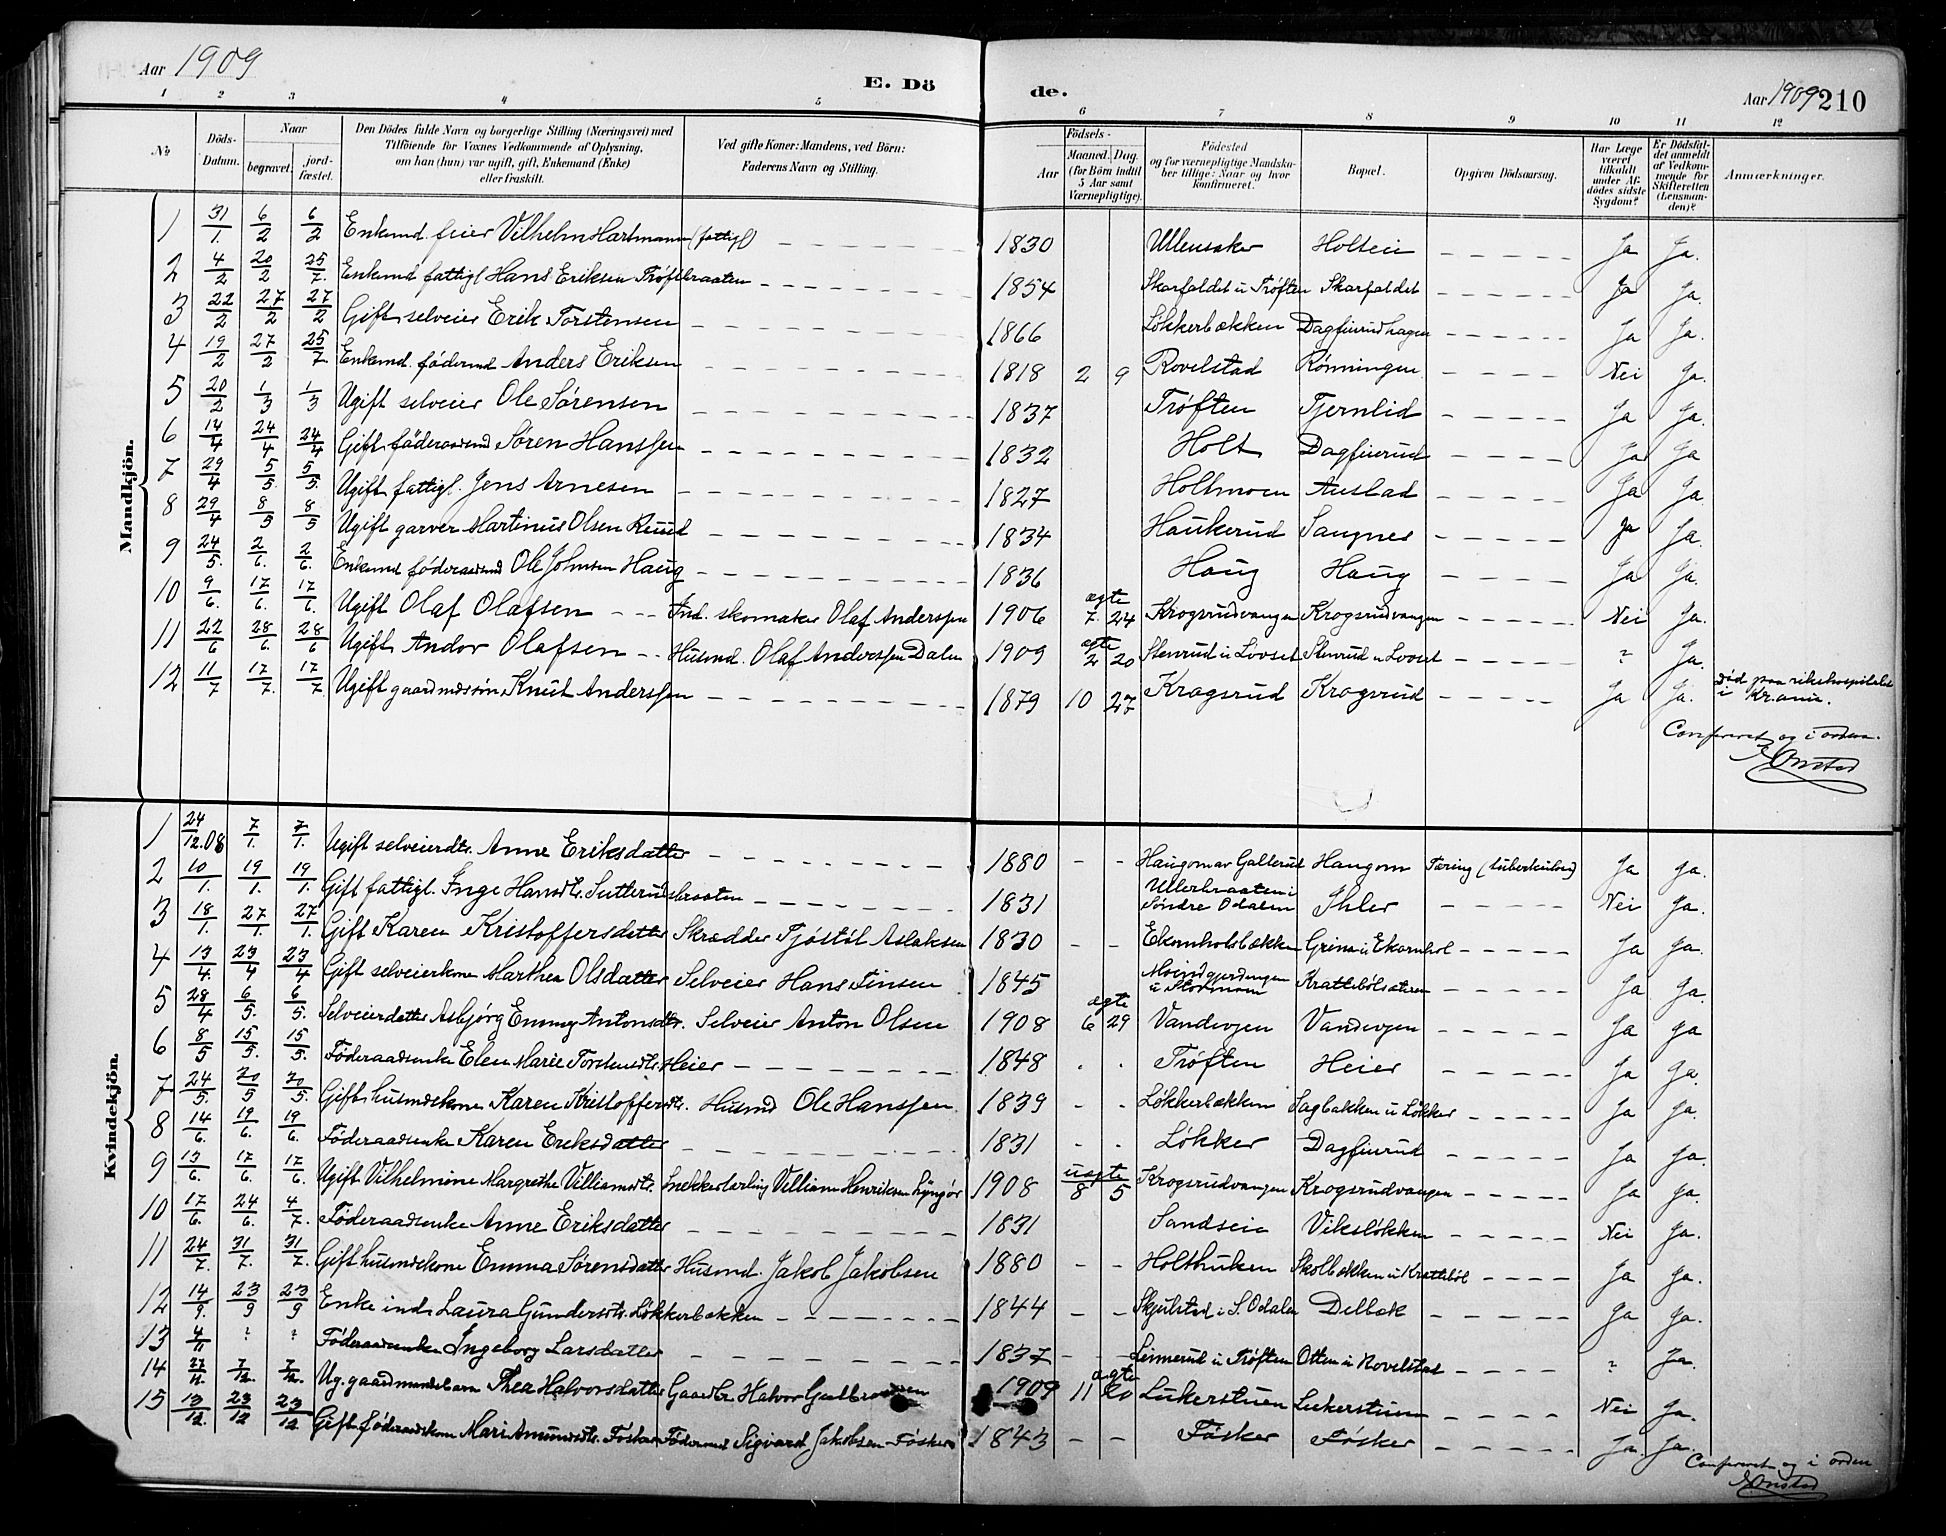 Aar 1909 E. Dö de. Aar 1909 210
1 2 3 4 5 6 7 8 9 10 11 12
No Döds-Datum. Naar begravet. jord-fæstet. Den Dödes fulde Navn og borgerlige Stilling (Næringsvei) med Tilföiende for Voxnes Vedkommende af Oplysning, om han (hun) var ugift, gift, Enkemand (Enke) eller fraskilt. Ved gifte Koner: Mandens, ved Börn: Faderens Navn og Stilling. Födsels- Aar Maaned. Dag. (for Börn indtil 5 Aar samt Værnepligtige). Födested og for værnepligtige Mandskaber tillige: Naar og hvor konfirmeret. Bopæl. Opgiven Dödsaarsag. Har Læge været tilkaldt under Afdödes sidste Sygdom? Er Dödsfaldet anmeldt af Vedkommende for Skifteretten (Lensmanden)? Anmærkninger.
Mandkjön.
1 31/1. 6/2 6/2 Enkemd. feier Vilhelm Hartmann (fattigl) 1830 Ullensaker Holseii Ja Ja.
2 4/2 20/2 25/7. Enkemd fattigl Hans Eriksen Trøftbraaten 1854 Skarfaldet u Trøften Skarfaldet Ja Ja.
3 22/2 27/2 27/2 Gift selveier Erik Torstensen 1866 Løkkerbækken Dagfinrudhagen Ja Ja.
4 19/2 27/2 25/7 Enkemd. fødermd Anders Eriksen 1818 2 9 Rovelstad Rønningen Nei Ja.
5 20/2 1/3 1/3 Ugift selveier Ole Sørensen 1837 Trøften Tjernlid Ja Ja.
6 14/4 24/4 24/4 Gift føderaadsmd Søren Hanssen 1832 Holt Dagfinrud Ja Ja
7 29/4 5/5 5/5. Ugift fattigl. Jens Arnesen 1827 Holtmoen Austad Ja Ja.
8 29/4 8/5 8/5 Ugift garver Martinus Olsen Ruud 1834 Haukerud Sangnes Ja Ja.
9 24/5. 2/6. 2/6. Enkemd føderaadsmd Ole Johnsen Haug 1836 Haug Haug Ja Ja.
10 9/6. 17/6. 17/6. Ugift Olaf Olafsen Ind. skomaker Olaf Anderssen 1906 ægte 7. 24 Krogsrudvangen Krogsrudvangen Nei Ja.
11 22/6 28/6. 28/6 Ugift Andor Olafsen Husmd. Olaf Anderssen Dalen 1909 ægte 2 20 Stenrud u Lovset Stenrud u Lovset ? Ja.
12 11/7 17/7. 17/7. Ugift gaardmdssøn Knut Anderssen 1879 10 27 Krogsrud Krogsrud Ja Ja. Død paa rikshospitalet i Kr.ania.
Confereret og i orden.
E. Onstad
Kvindekjön.
1 24/12.08 7/1. 7/1. Ugift selveierdtr. Anne Eriksdatter 1880 Haugomar Gallerud Haugom Tæring (tuberkulose) Ja Ja.
2 10/1. 19/1. 19/1. Gift fattigl. Inge Hansdtr. Sutterudsbraaten 1831 Ullerbraaten i Søndre Odalen Ihler Nei Ja.
3 18/1. 27/1. 27/1. Gift Karen Kristoffersdatter Skrædder Tjøstøl Aslaksen 1830 Ekornholsbækken Grina u Ekornhol Ja Ja.
4 13/4. 23/4 23/4 Gift selveierkone Marthea Olsdatter Selveier Hans Finsen 1845 Krattebølsæteren Ja Ja.
5 28/4 6/5. 6/5. Selveierdatter Asbjørg Emmy Antonsdtr. Selveier Anton Olsen 1908 ægte 6 29 Vandevjen Vandevjen Ja Ja
6 8/5 15/5. 15/5. Føderaadsenke Elen Marie Torstensdtr. Heier 1848 Trøften Heier Ja Ja.
7 24/5. 30/5 30/5. Gift husmdskone Karen Kristoffersdtr. Husmd Ole Hanssen 1839 Løkkerbækken Sagbakken u Løkker Ja Ja.
8 14/6. 19/6. 19/6. Føderaadsenke Karen Eriksdatter 1831 Løkker Dagfinrud Ja Ja.
9 13/6. 17/6. 17/6. Ugift Vilhelmine Margrethe Villiamsdtr. Snekkerlærling Villiam Henriksen Lyngør 1908 uægte 8 5 Krogsrudvangen Krogsrudvangen Ja Ja.
10 17/6. 24/6. 4/7. Føderaadsenke Anne Eriksdatter 1831 Sandseie Viksløkken Nei Ja.
11 24/7. 31/7. 31/7. Gift husmdskone Emma Sørensdatter Husmd. Jakob Jakobsen 1880 Holthuken Skolbakken u Krattebøl Ja Ja.
12 14/9. 23/9 23/9 Enke inds Laura Gundersdtr. Løkkerbækken 1844 Skjulstad i S. Odalen Delbæk Ja Ja.
13 4/11 ? ? Føderaadsenke Ingeborg Larsdatter 1837 Linnerud u Trøften Otten u Rovelstad ? Ja.
14 27/11. 7/12. 7/12. Ug. gaardmandsbarn Thea Halvorsdatter Gaardbr. Halvor 1909 ægte 11 20 Lukerstuen Lukerstuen Nei Ja.
15 13/12. 23/12 23/12 Gift føderaadskone Mari Amundsdtr. Føsker Fødermd Sigvard Jakobsen Føsker 1843 Føsker Føsker Ja. Ja.
Confereret og i orden
E. Onstad